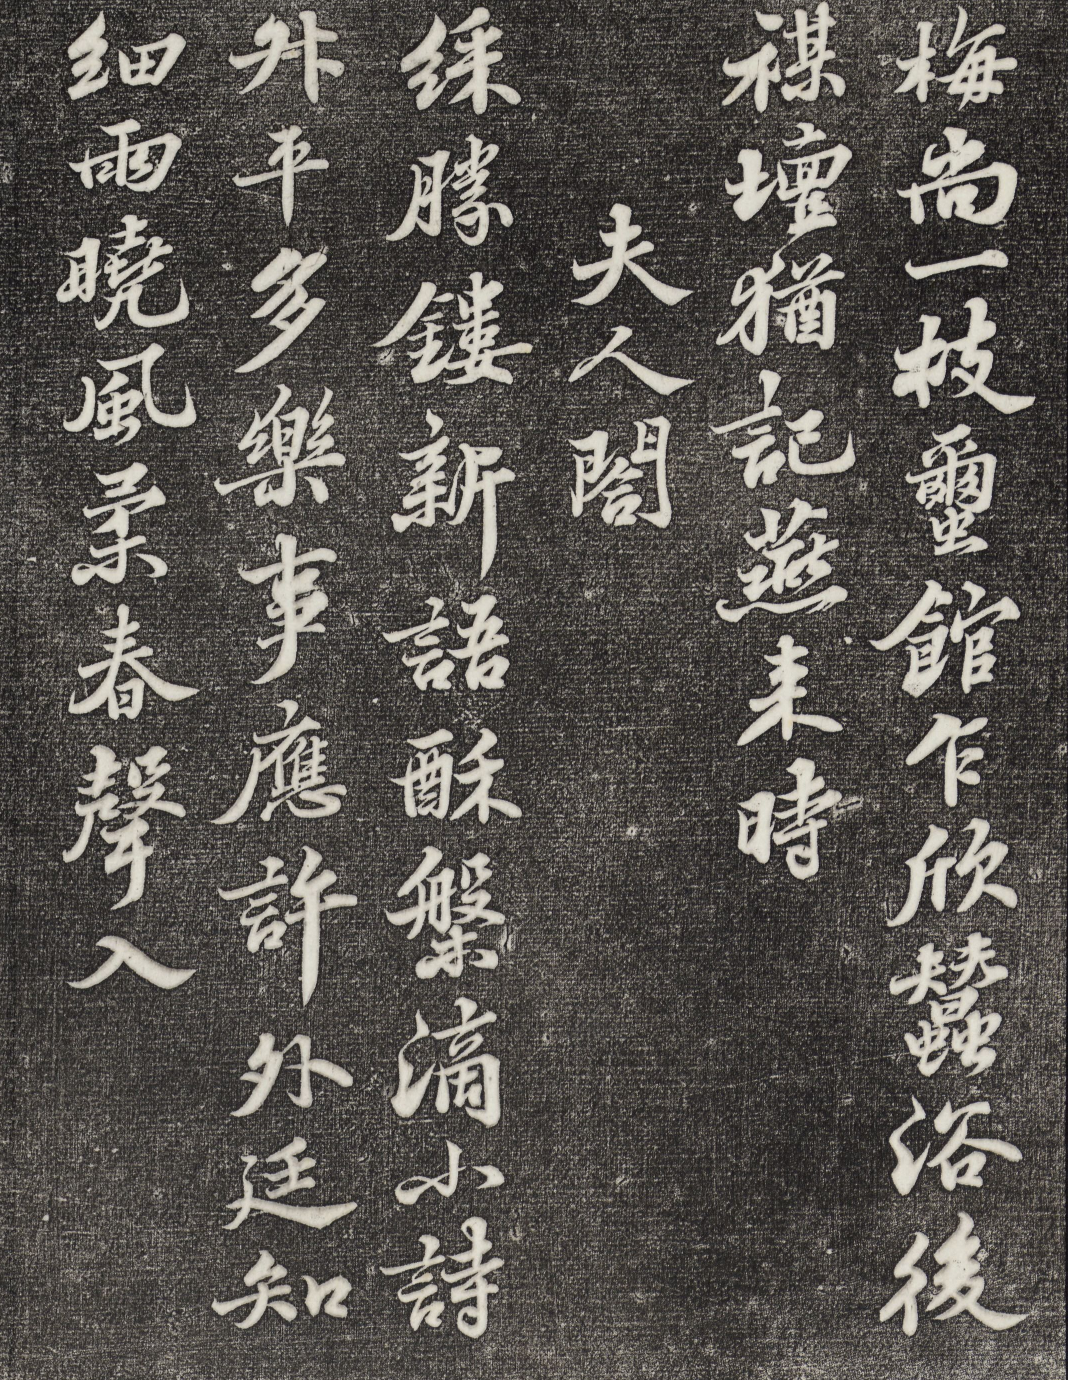 梅尚一枝蠒館乍欣蠶浴後
禖壇猶記燕来時
夫人閤
綵勝鏤新語酥槃滴小詩
升平多樂事應許外廷知
细雨曉風柔春聲入